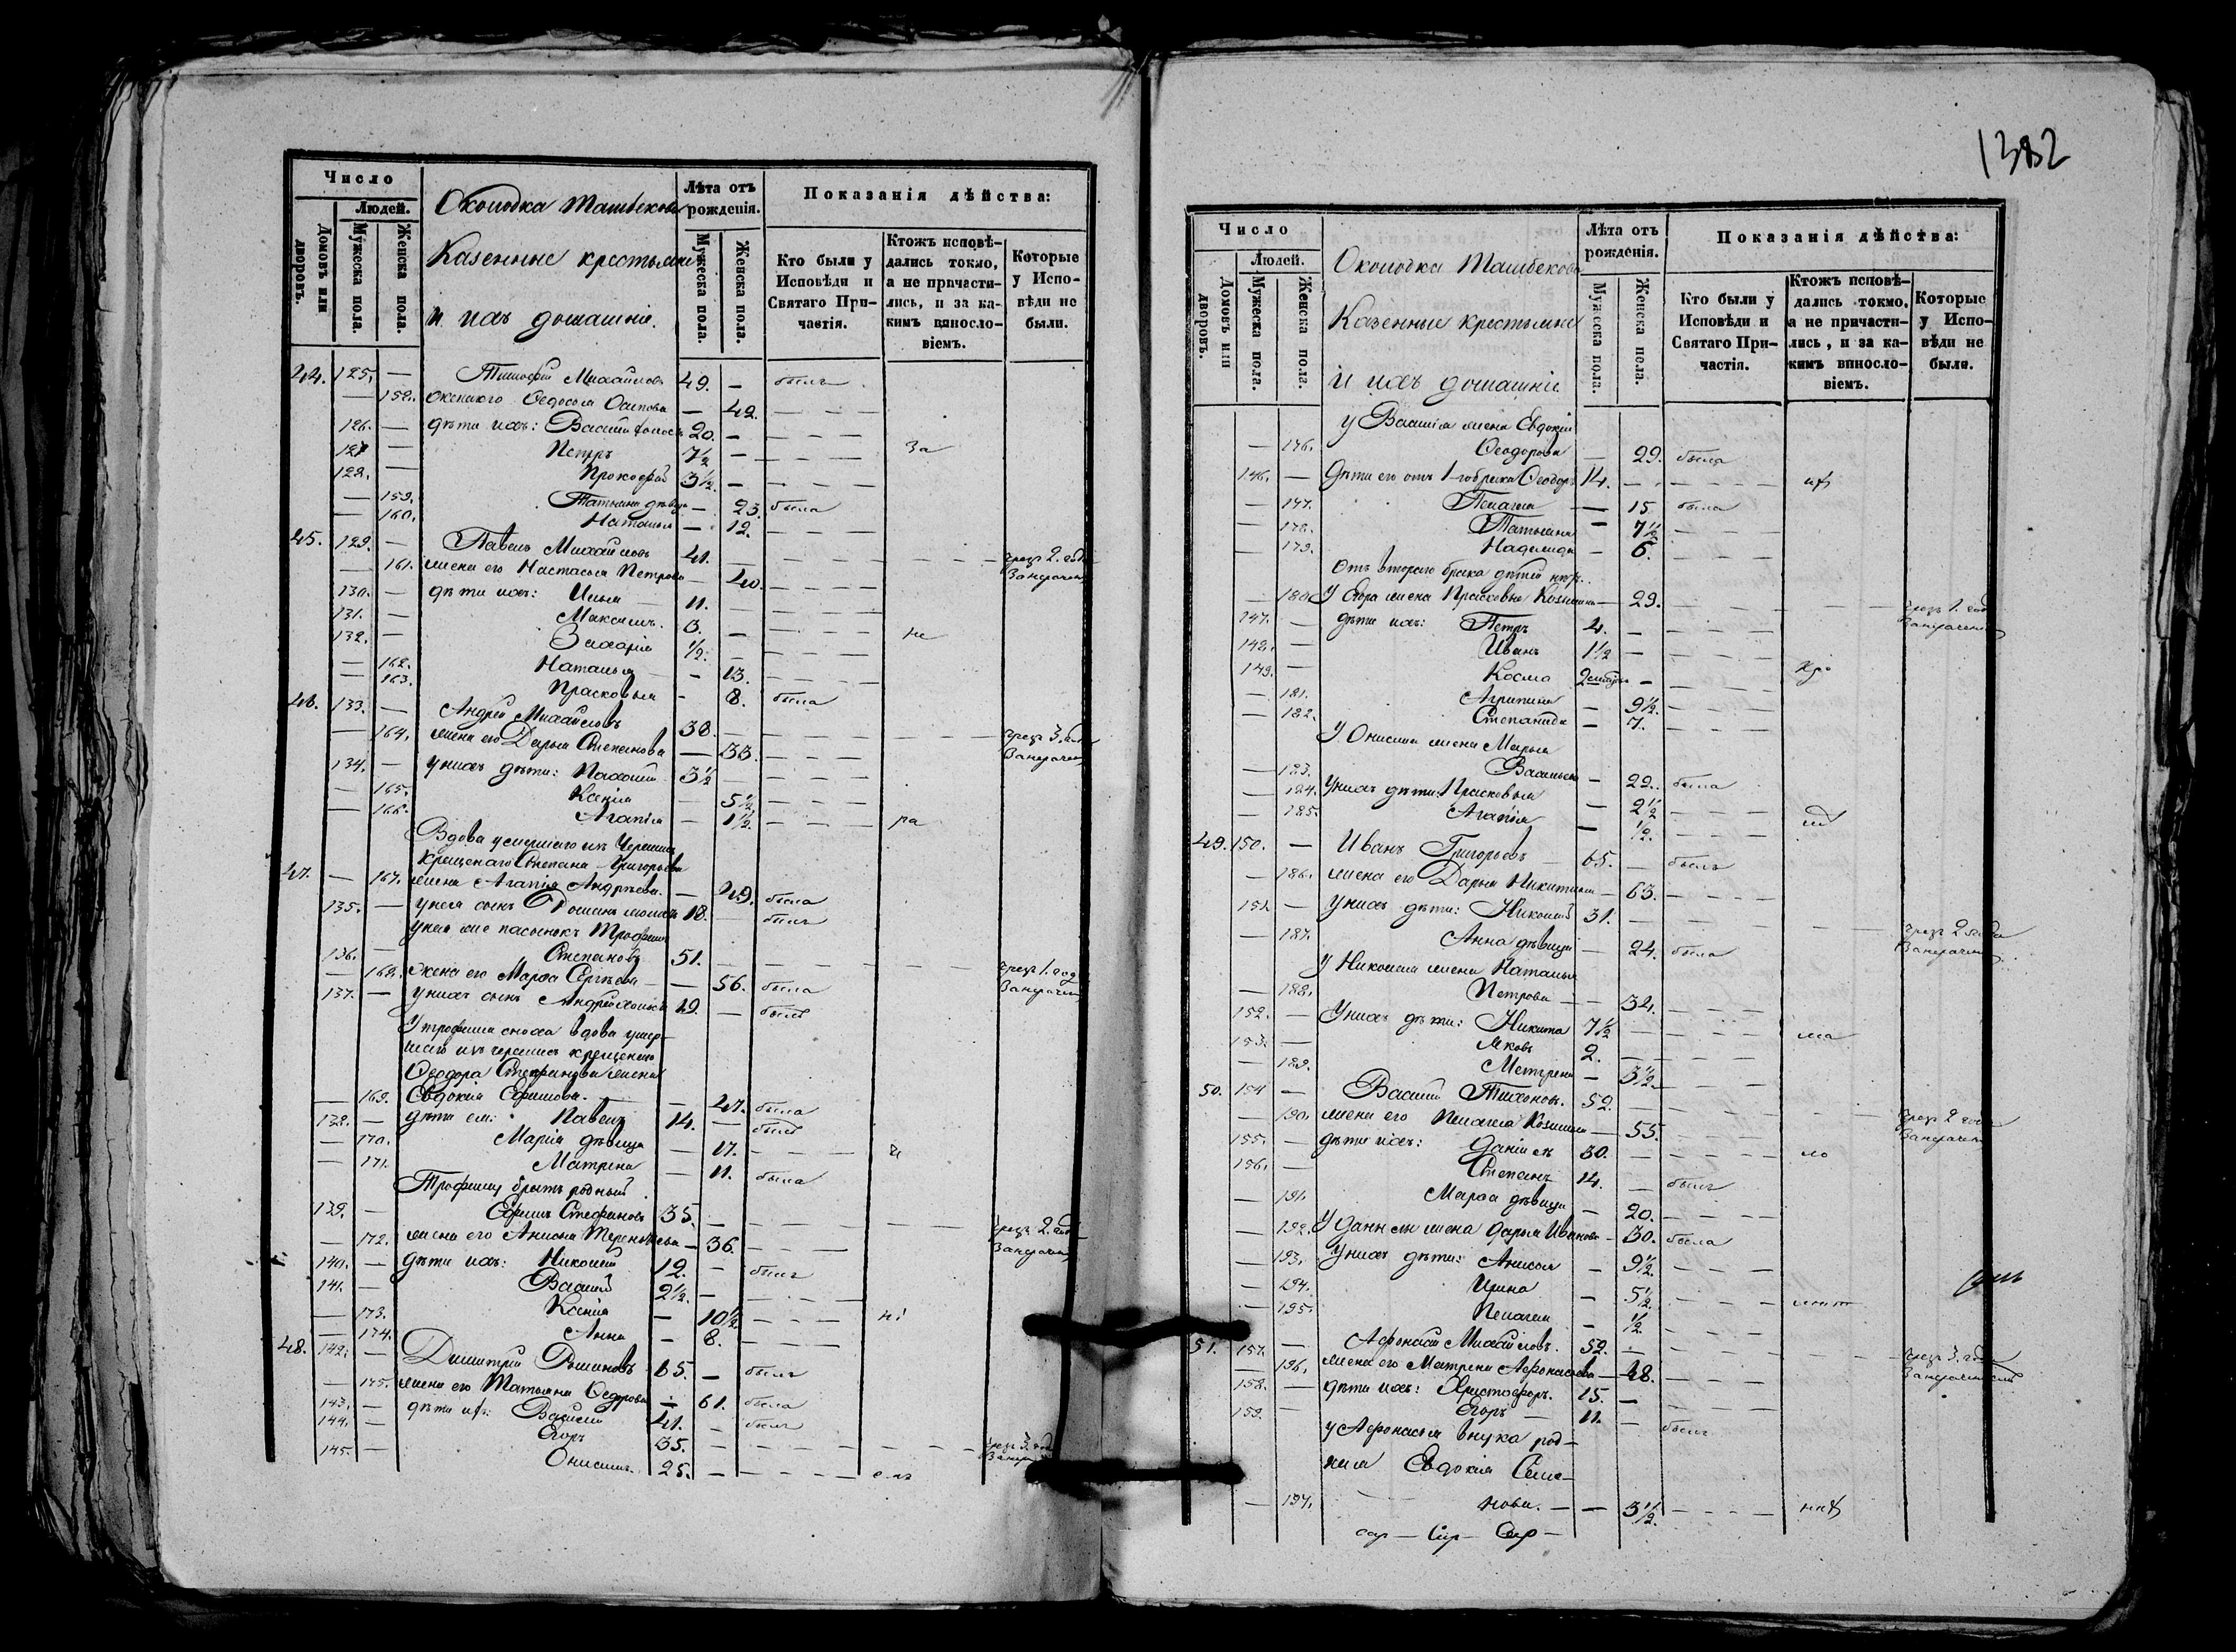 Число
Людей.
Домовъ или дворовъ.
Мужеска пола.
Женска пола.
Околодка Ташбекова
Казенные крестьяне
и ихъ домашніе.
Лѣта отъ рожденія.
Мужеска пола.
Женска пола.
Показанія дѣйства:
Кто были у Исповѣди и Святаго Причастія.
Ктожъ исповѣдались токмо, а не причастились, и за какимъ винословіемъ.
Которые у Исповѣди не были.
44. 125. — Тимофей Михайловъ 49. — былъ
— 158. Федосья Осипова — 42. — — —
126. — дѣти ихъ: Василій холостъ 20. — — — —
127 — Петръ 7½ — — — — За
128. — Прокофій 3½. — — — —
— 159. Татьяна дѣвица — 23. была
— 160. Наталья — 12. — — —
45. 129. — Павелъ Михайловъ 41. — — — — чрезъ 2. года
— 161. жена его Настасья Петрова — 40. — — —
130. — дѣти ихъ: Илья 11. — — —
131. — Максимъ. 3. — — — — не
132. — Захарія ½. — — — —
— 162. Наталья — 13. — — —
— 163. Прасковья — 8. была
46. 133. — Андрей Михайловъ 38. — — — — чрезъ 3. года
— 164. жена его Дарья Степанова — 33. — — —
134. — у нихъ дѣти: Пахомій 3½ — — — —
— 165. Ксенія — 5½ — — —
— 166. Агапія — 1½. — — — ра
Вдова умершаго изъ Черемисъ
крещенаго Степана Григорьева
47. — 167. жена Агапія Андрѣева. — 49. была
135. — у нея сынъ 18. — былъ
у нея же пасынокъ Трофимъ
136. — Степановъ 51. — — — — чрезъ 1. годъ
— 168. жена его Марѳа Сергѣева — 56. была
137. — у нихъ сынъ Андрей холостъ 19. — былъ
У Трофима сноха вдова умер-
шаго изъ черемисъ крещенаго
Ѳеодора Стефанова жена
— 169. Евдокія Ефимова. — 47. была
138. — дѣти ея: Павелъ 14. — былъ
— 170. Марія дѣвица — 17. — — — 
— 171. Матрена — 11. была
Трофиму братъ родный
139. — Ефимъ Стефановъ 35. — — — — чрезъ 2. года
— 172. жена его Анисья Терентьева — 36. — — —
140. — дѣти ихъ: Никонъ 12. — былъ
141. — Василій 2½. — — — —
— 173. Ксенія — 10½ — — — ні
— 174. Анна — 8. — — —
48. 142. — Димитрій 65. — былъ
— 175. жена его Татьяна Ѳедорова — 61. была
143. — дѣти ихъ: Василій 41. — былъ
144. — Егоръ 35. — — — — чрезъ 3. года
145. — Онисимъ. 25. — — — —
1382
Число
Людей.
Домовъ или дворовъ.
Мужеска пола.
Женска пола.
Околодка Ташбекова
Казенные крестьяне
и ихъ домашніе
Лѣта отъ рожденія.
Мужеска пола.
Женска пола.
Показанія дѣйства:
Кто были у Исповѣди и Святаго Причастія.
Ктожъ исповѣдались токмо, а не причастились, и за какимъ винословіемъ.
Которые у Исповѣди не были.
У Василія жена Евдокія
— 176. Ѳеодорова — 29. была
146. — Дѣти его отъ 1-го брака Ѳеодоръ 14. — — — — ихъ
— 177. Пелагея — 15 была
— 178. Татьяна — 7½ — — —
— 179. Надежда — 6. — — —
Отъ втораго брака дѣтей нѣтъ.
— 180. У Егора жена Прасковья Козьмина — 29. — — — чрезъ 1. годъ
147. — дѣти ихъ: Петръ 4. — — — —
148. — Иванъ 1½ — — — —
149. — Косма — — — —
— 181. Агрипина — 9½. — — —
— 182. Степанида — 7. — — —
У Онисима жена Марья
— 183. Васильева — 22. была
— 184. У нихъ дѣти: Прасковья — 2½ — — —
— 185. Агапія — ½. — — —
49. 150. — Иванъ Григорьевъ 65. — былъ
— 186. жена его Дарья Никитина — 63. — — —
151. — У нихъ дѣти: Николай 31. — — — — чрезъ 2 года
— 187. Анна дѣвица — 24. была
У Николая жена Наталья
— 188. Петрова — 34. — — —
152. — У нихъ дѣти: Никита 7½ — — — — ма
153. — Яковъ 2. — — — —
— 189. Матрена — 3½ — — —
50. 154 — Василій Тихоновъ. 52. — — — — чрезъ 2 года
— 190. жена его Пелагея Козьмина — 55. — — —
155. — дѣти ихъ: Даніилъ 30. — — — — ло
156. — Степанъ 14. — былъ
— 191. Марѳа дѣвица — 20. — — —
— 192. У Даніила жена Дарья Иванова — 30. была
— 193. У нихъ дѣти: Анисья — 9½. — — —
— 194. Ирина — 5½. — — —
— 195. Пелагея — ½. — — —
51. 157. — Афонасій Михайловъ. 52. — — — — чрезъ 3. года
— 196. жена его Матрена Афонасьева — 48. — — —
158. — дѣти ихъ: Христофоръ. 15. — — — —
159. — Егоръ — 11. — былъ
у Афонасья внука род-
ная Евдокія Симо-
— 197. нова. — — 3½. — — —